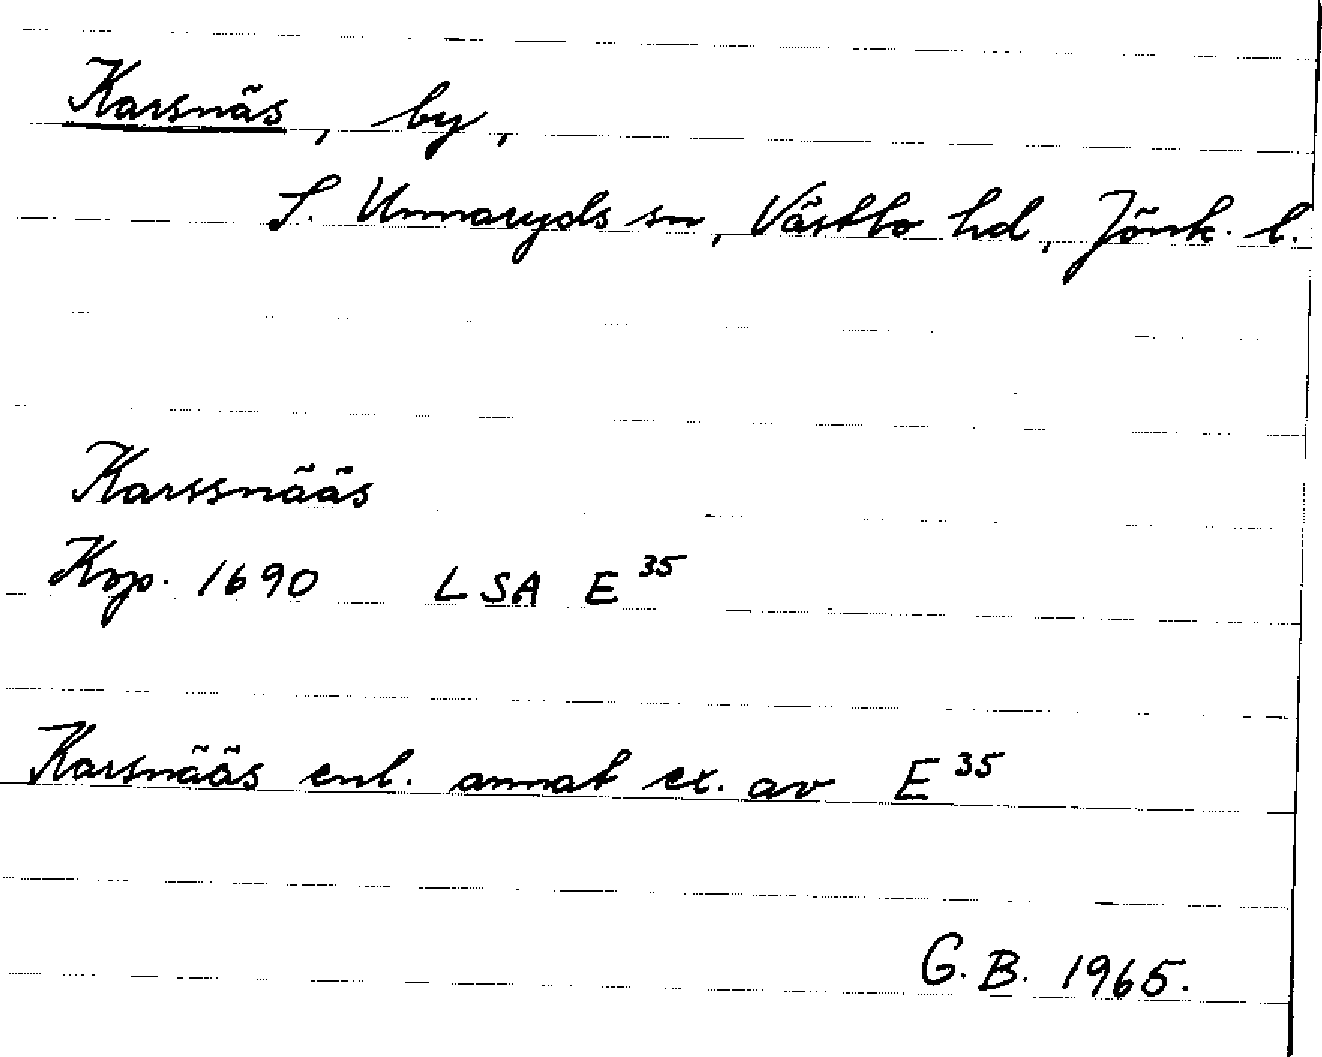 Karsnäs, by,
S. Unnaryds sn, Västbo hd, Jönk. l.
Karssnääs
Kop. 1690 LSA E 35
Karsnääs enl. annat ex. av E 35
G. B. 1965.